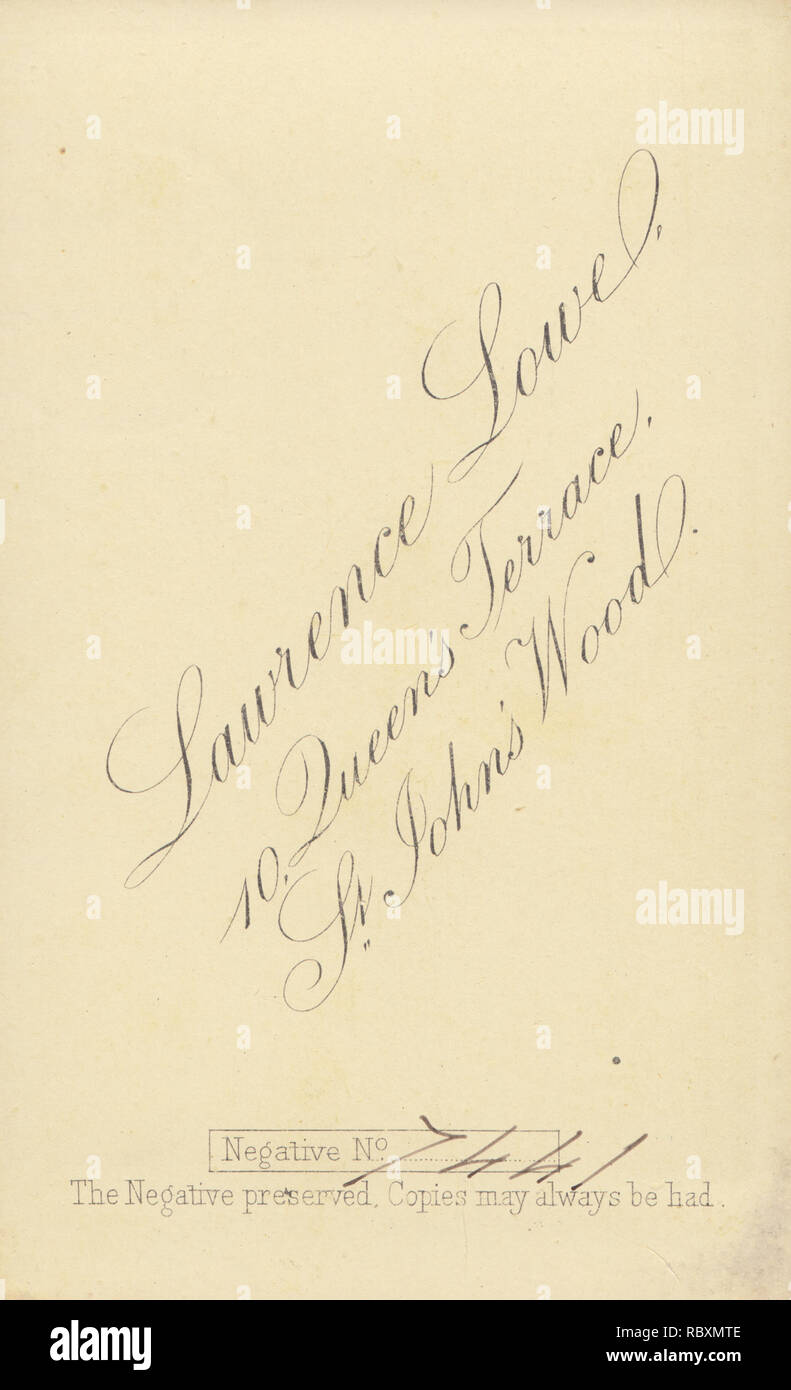 Lawrence Lowe.
10, Queen's Terrace,
St John's Wood.
Negative No. 7441
The Negative preserved, Copies may always be had.
alamy
alamy
alamy
alamy
Image ID: RBXMTE
www.alamy.com